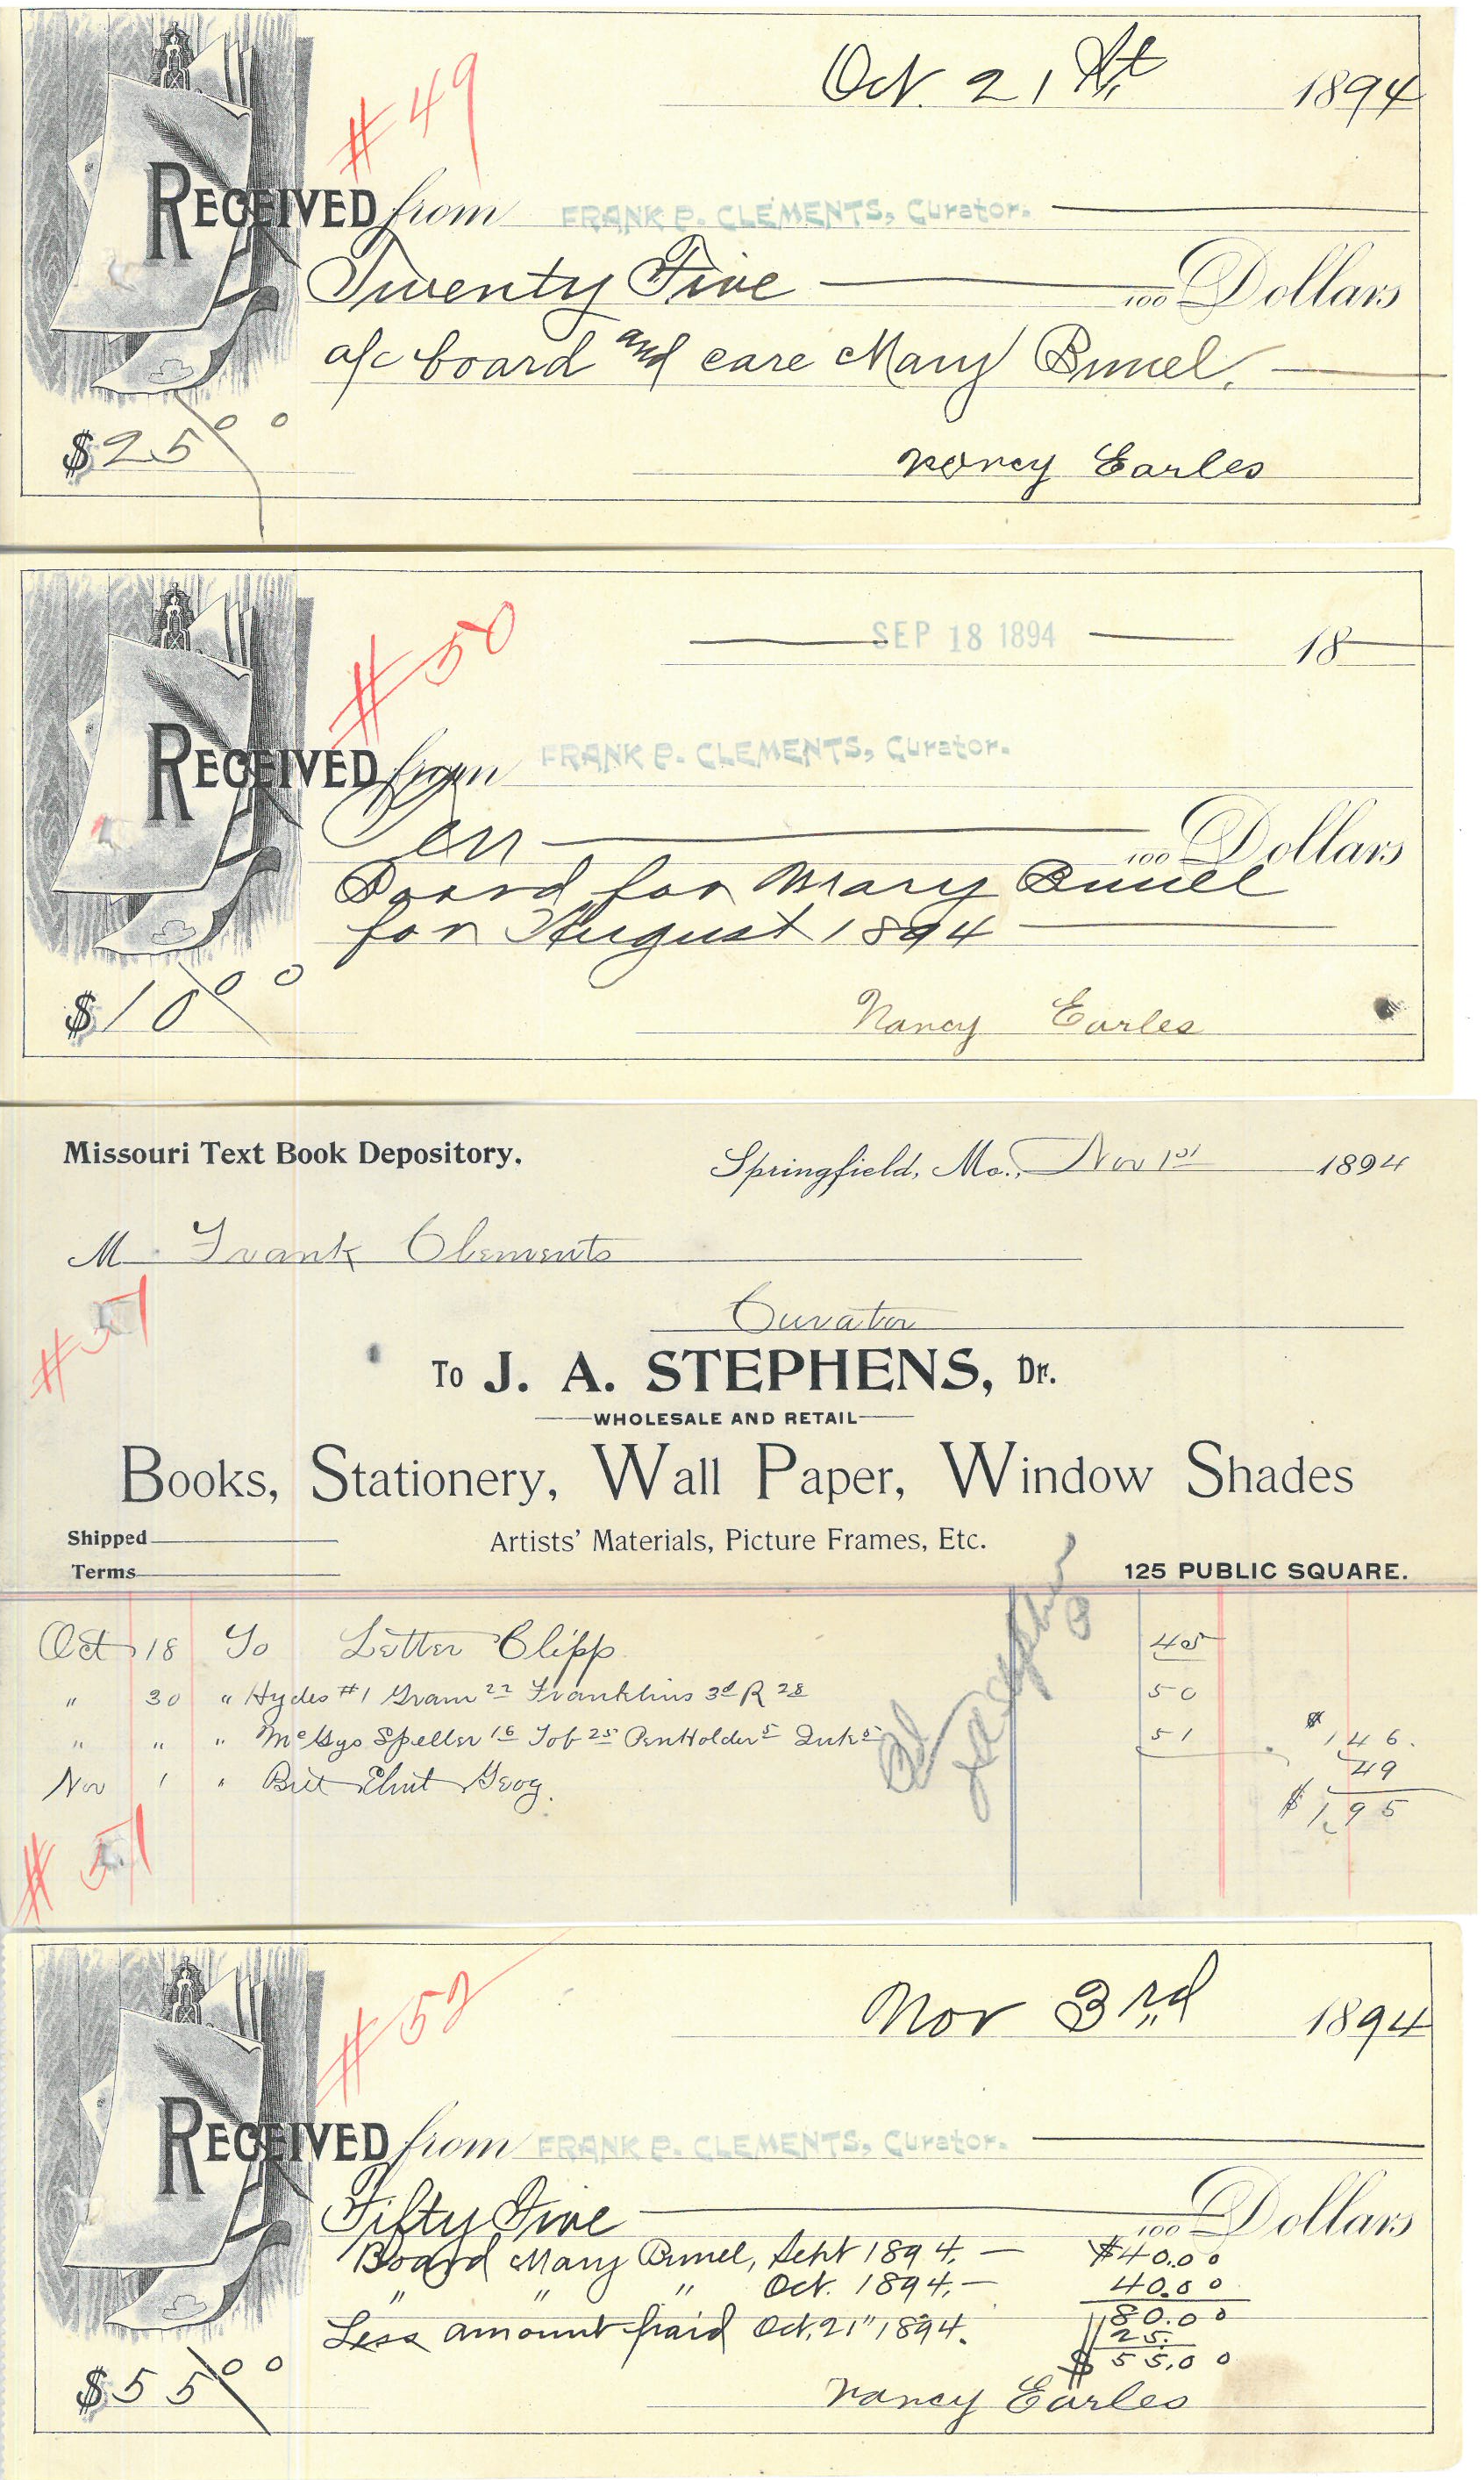 #49
Oct. 21st, 1894
RECEIVED from FRANK P. CLEMENTS, Curator.
Twenty Five 100 Dollars
a/c board and care Mary Bunel.
$25 00
Nancy Earles
#50
SEP 18 1894 18
RECEIVED from FRANK P. CLEMENTS, Curator.
Ten 100 Dollars
Board for Mary Bunel
for August 1894
$10 00
Nancy Earles
Missouri Text Book Depository.
Springfield, Mo., Nov 1st 1894
M Frank Clements
Curator
#51
To J. A. STEPHENS, Dr.
WHOLESALE AND RETAIL
Books, Stationery, Wall Paper, Window Shades
Shipped
Artists' Materials, Picture Frames, Etc.
Terms
125 PUBLIC SQUARE.
Pd JA Stephens
Oct 18 To Letter Clipp 45
" 30 " Hydes #1 Gram 22 Franklins 3d R 28 50
" " " McGys Speller 16 Tob 25 PenHolder 5 Ink 5 51 $146.
Nov 1 " Geog. 49
$1,95
#51
#52
Nov 3rd, 1894
RECEIVED from FRANK P. CLEMENTS, Curator.
Fifty Five 100 Dollars
Board Mary Bunel, Sept 1894. — $40.00
" " " Oct. 1894, — 40.00
80.00
Less amount paid Oct, 21" 1894. 25.
$55.00
$55 00
Nancy Earles